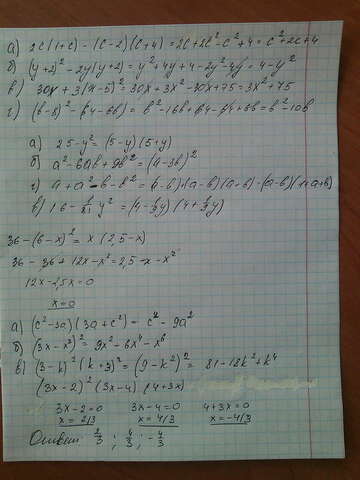 а) 2c(1+c) - (c-2)(c+4) = 2c+2c²-c²+4 = c²+2c+4
б) (y+2)² - 2y(y+2) = y²+4y+4-2y²-4y = 4-y²
в) 30x+3(x-5)² = 30x+3x²-30x+75 = 3x²+75
г) (b-8)² - (64-6b) = b²-16b+64-64+6b = b²-10b
а) 25-y² = (5-y)(5+y)
б) a²-6ab+9b² = (a-3b)²
г) a+a²-b-b² = (a-b)+(a-b)(a+b) = (a-b)(1+a+b)
в) 16 - 1/81 y² = (4-1/9y)(4+1/9y)
36-(6-x)² = x(2,5-x)
36-36+12x-x² = 2,5-x-x²
12x-2,5x=0
x=0
а) (c²-3a)(3a+c²) = c⁴-9a²
б) (3x-x³)² = 9x²-6x⁴-x⁶
в) (3-k)²(k+3)² = (9-k²)² = 81-18k²+k⁴
(3x-2)²(3x-4)(4+3x)
3x-2=0 3x-4=0 4+3x=0
x=2/3 x=4/3 x=-4/3
Ответ: 2/3; 4/3; -4/3